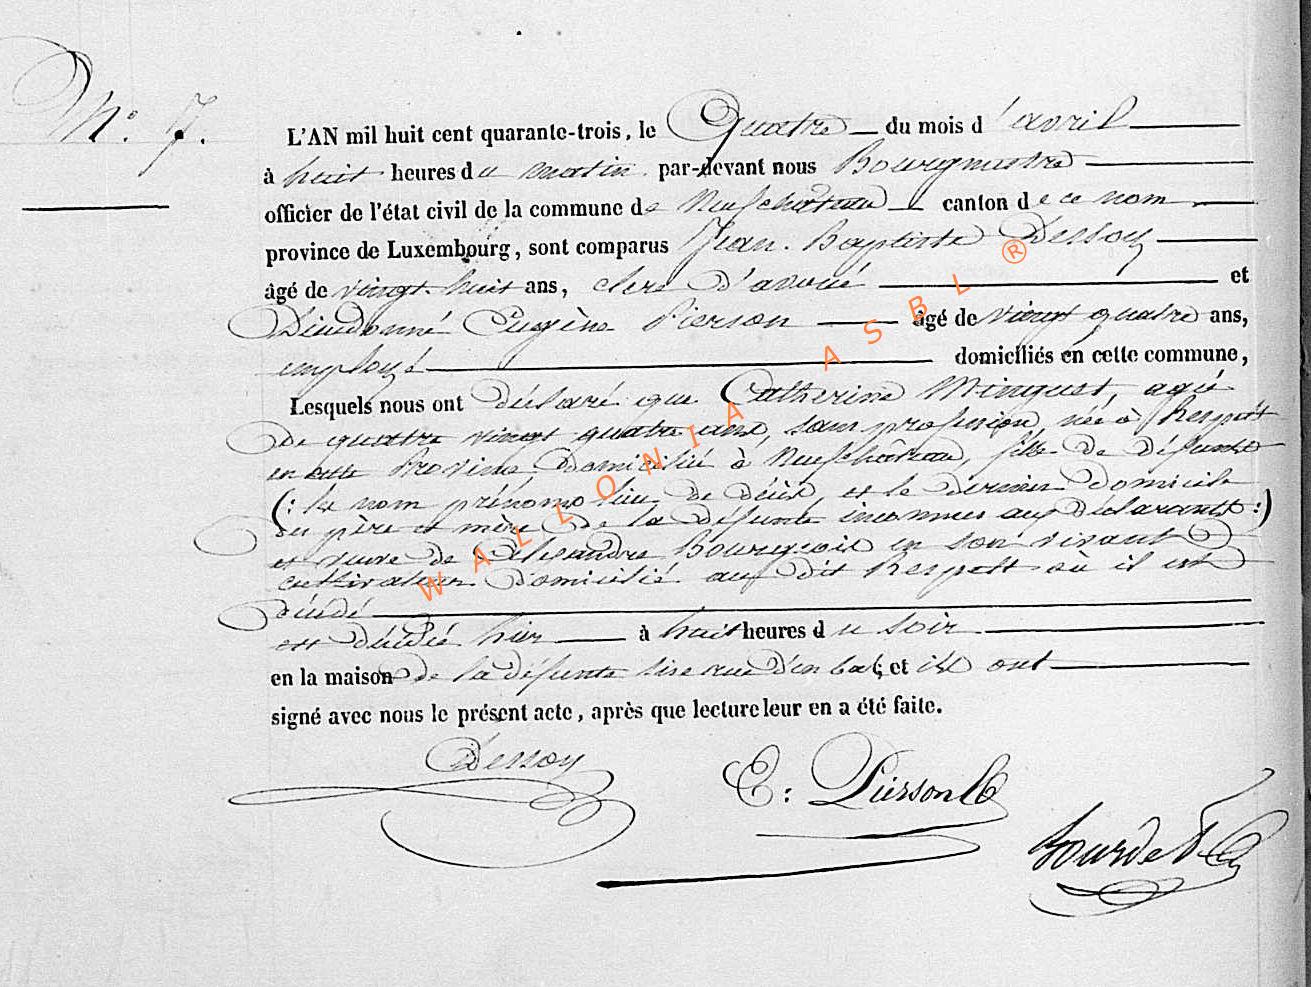 N.° 7.
L'AN mil huit cent quarante-trois, le Quatre du mois d'avril
à huit heures du matin par-devant nous Bourgmestre
officier de l'état civil de la commune de Neufchâteau canton de ce nom
province de Luxembourg, sont comparus Jean-Baptiste Dessoy
âgé de vingt-huit ans, clerc d'avoué et
Dieudonné Eugène Pierson âgé de vingt quatre ans,
employé domiciliés en cette commune,
Lesquels nous ont déclaré que Catherine Minguet, agée
de quatre vingt quatre ans, sans profession, née à Respelt
en cette Province Domiciliée à Neufchâteau, fille de défunts
(: le nom prénoms lieu de décès, et le dernier domicile
du père et mère de la défunte inconnus aux déclarants :)
et veuve de Alexandre Bourgeois en son vivant
cultivateur domicilié au dit Respelt où il est
décédé
est décédée hier à huit heures du soir
en la maison de la défunte sise rue d'en bas, et ils ont
signé avec nous le présent acte, après que lecture leur en a été faite.
Dessoy
E: Pierson
Bourdet
WALLONIA ASBL ®